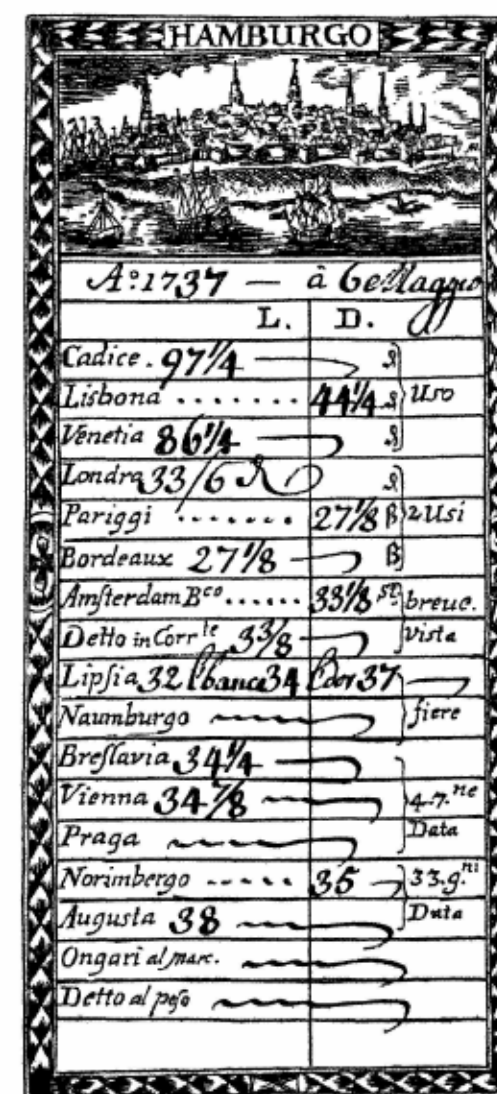 HAMBURGO
A:º 1737 — â 6 Maggio
L. D.
Cadice . 97 1/4
Lisbona . . . . . . . 44 1/4 Uso
Venetia 86 1/4
Londra 33/6
Pariggi . . . . . . 27 1/8 β 2 Usi
Bordeaux 27 1/8 β
Amsterdam Bco . . . . . 33 1/8 st. breue.
Detto in Corrte 33/8 vista
Lipsia 32 34 37
Naumburgo fiere
Breslavia 34 1/4
Vienna 34 7/8 4.7.ne
Praga Data
Norimbergo . . . . . 35 33.g.ni
Augusta 38 Data
Ongari al marc.
Detto al peso